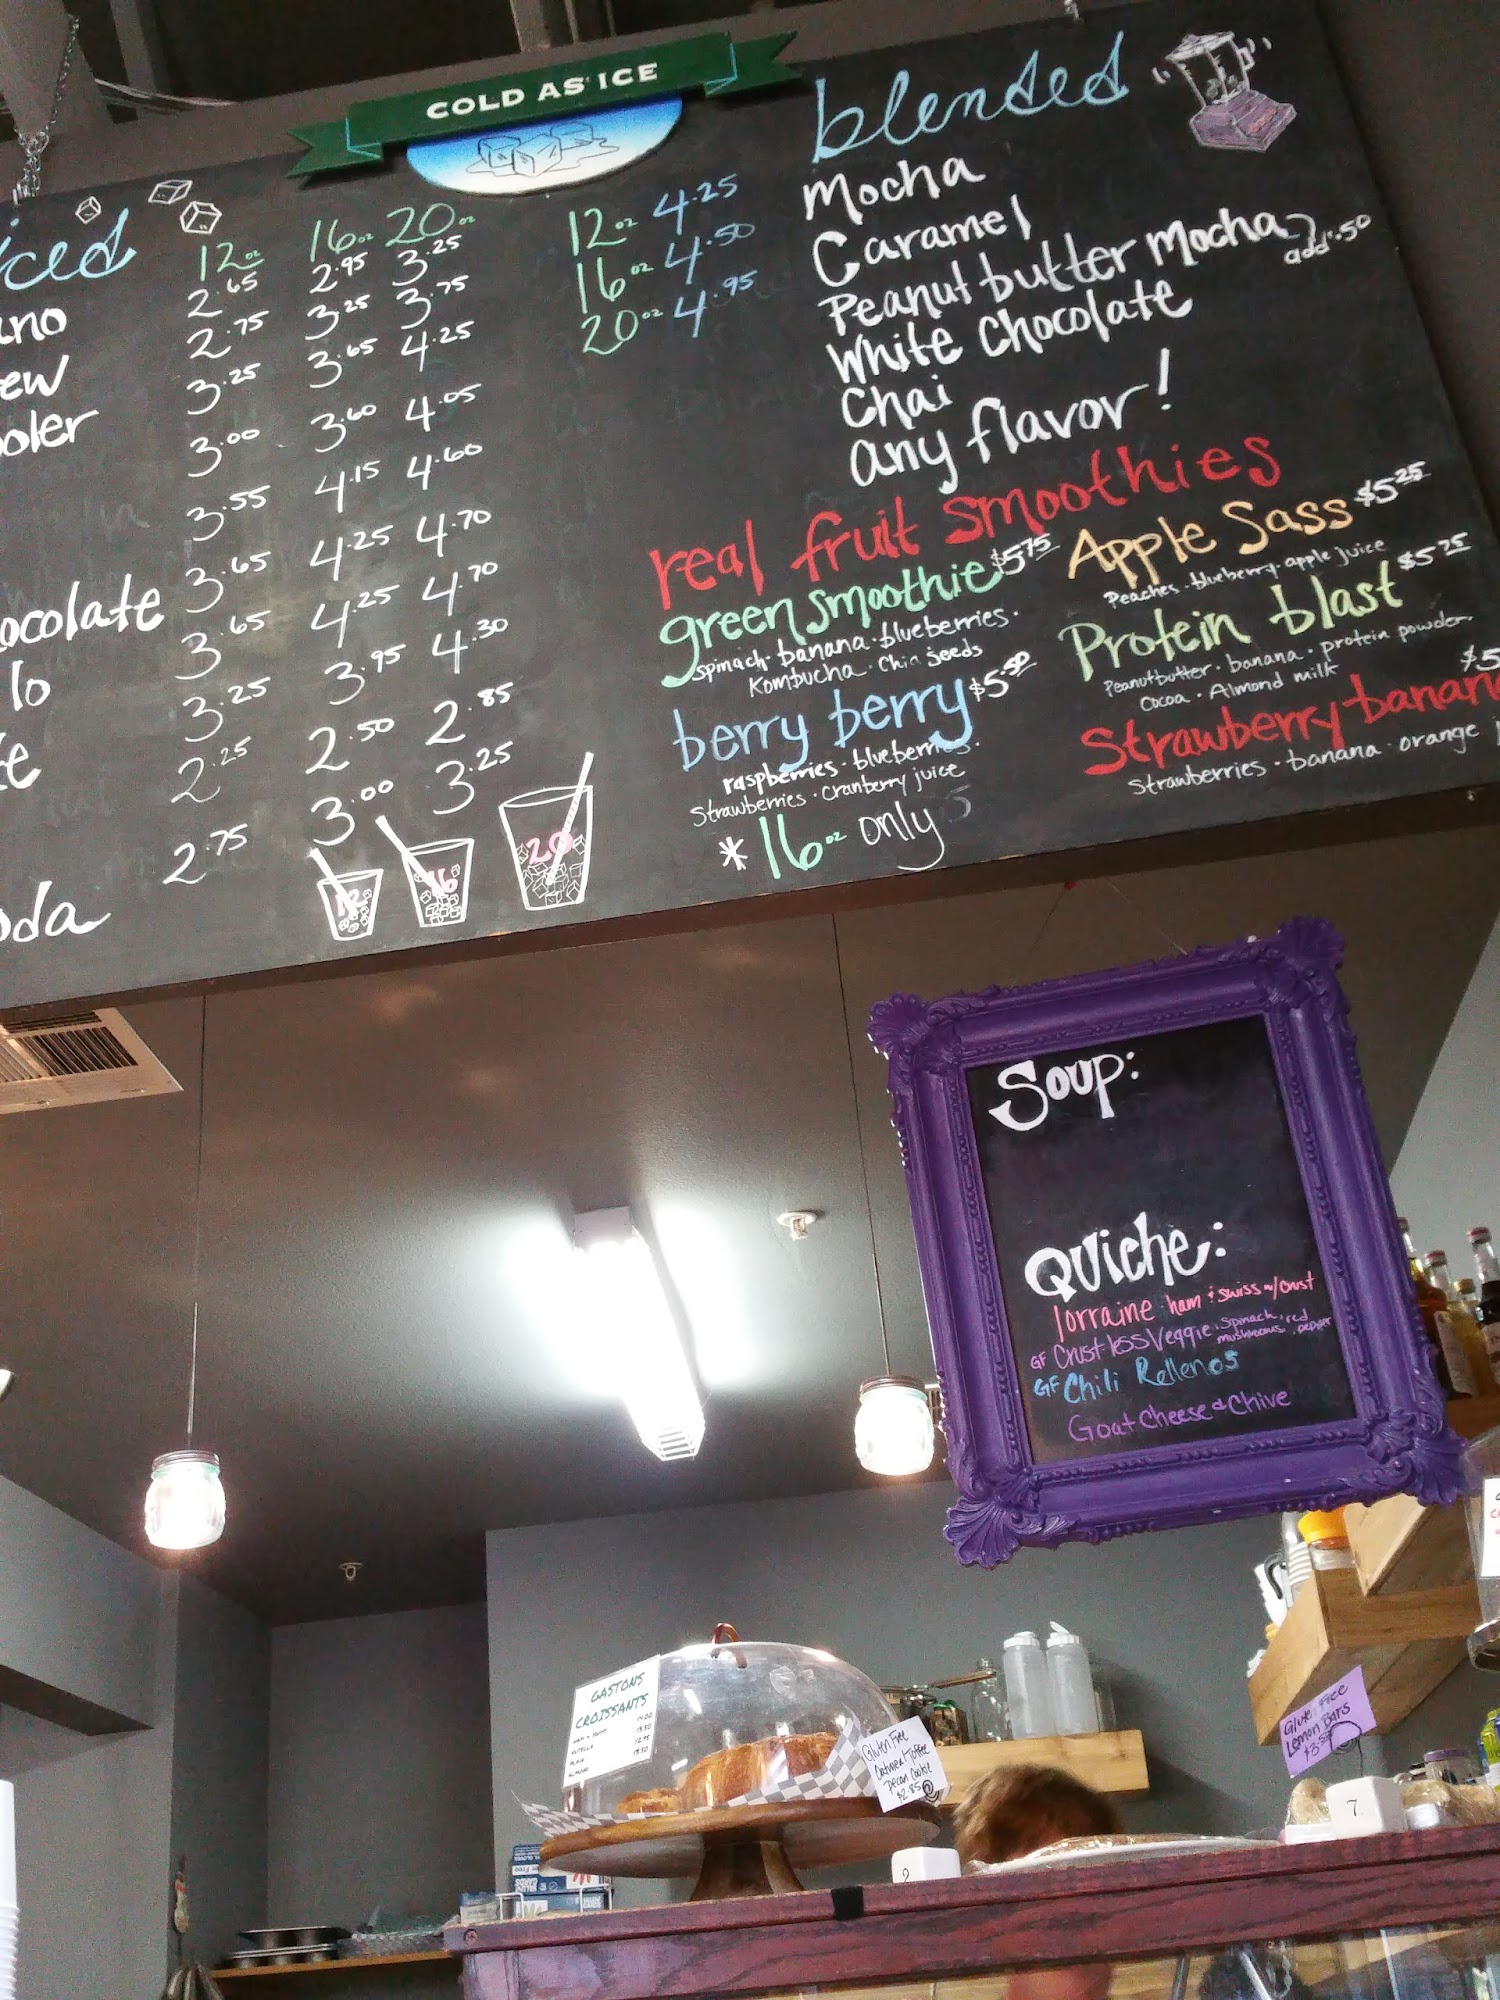 COLD AS ICE
iced
12oz 16oz 20oz
ano 2.65 2.95 3.25
ew 2.75 3.25 3.75
ooler 3.25 3.65 4.25
3.00 3.60 4.05
3.55 4.15 4.60
ocolate 3.65 4.25 4.70
lo 3.65 4.25 4.70
te 3.25 3.95 4.30
2.25 2.50 2.85
oda 2.75 3.00 3.25
12 16 20
12oz 4.25
16oz 4.50
20oz 4.95
blended
Mocha
Caramel
Peanut butter Mocha add .50
White Chocolate
Chai
any flavor!
real fruit smoothies
green smoothie $5.75
spinach · banana · blueberries ·
Kombucha · Chia seeds
berry berry $5.50
raspberries · blueberries ·
Strawberries · Cranberry juice
* 16oz only
Apple Sass $5.25
Peaches · blueberry · apple juice
Protein blast $5.75
Peanutbutter · banana · protein powder ·
Cocoa · Almond milk
Strawberry banan $5
Strawberries · banana · orange j
Soup:
Quiche:
lorraine ham & swiss w/crust
GF Crustless Veggie · Spinach, red
mushrooms, pepper
GF Chili Rellenos
Goat Cheese & Chive
GASTONS
CROISSANTS
HAM & SWISS
NUTELLA
PLAIN
ALMOND
Gluten Free
Oatmeal Toffee
Pecan Cookie
$2.85
Glute Free
Lemon Bars
7
2